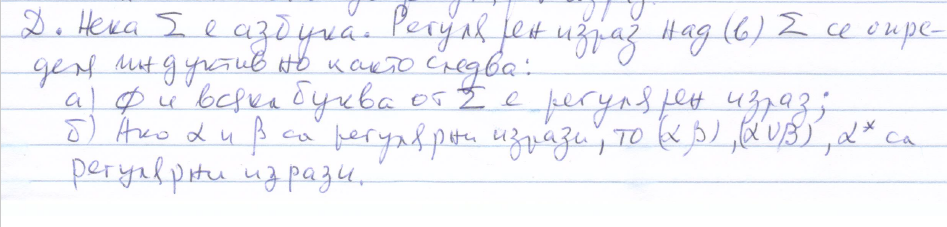 Д. Нека Σ е азбука. Регулярен израз над (в) Σ се опре-
деля индуктивно както следва:
а) ф и всяка буква от Σ е регулярен израз;
б) Ако α и β са регулярни изрази, то (αβ), (α∪β), α* са
регулярни изрази.